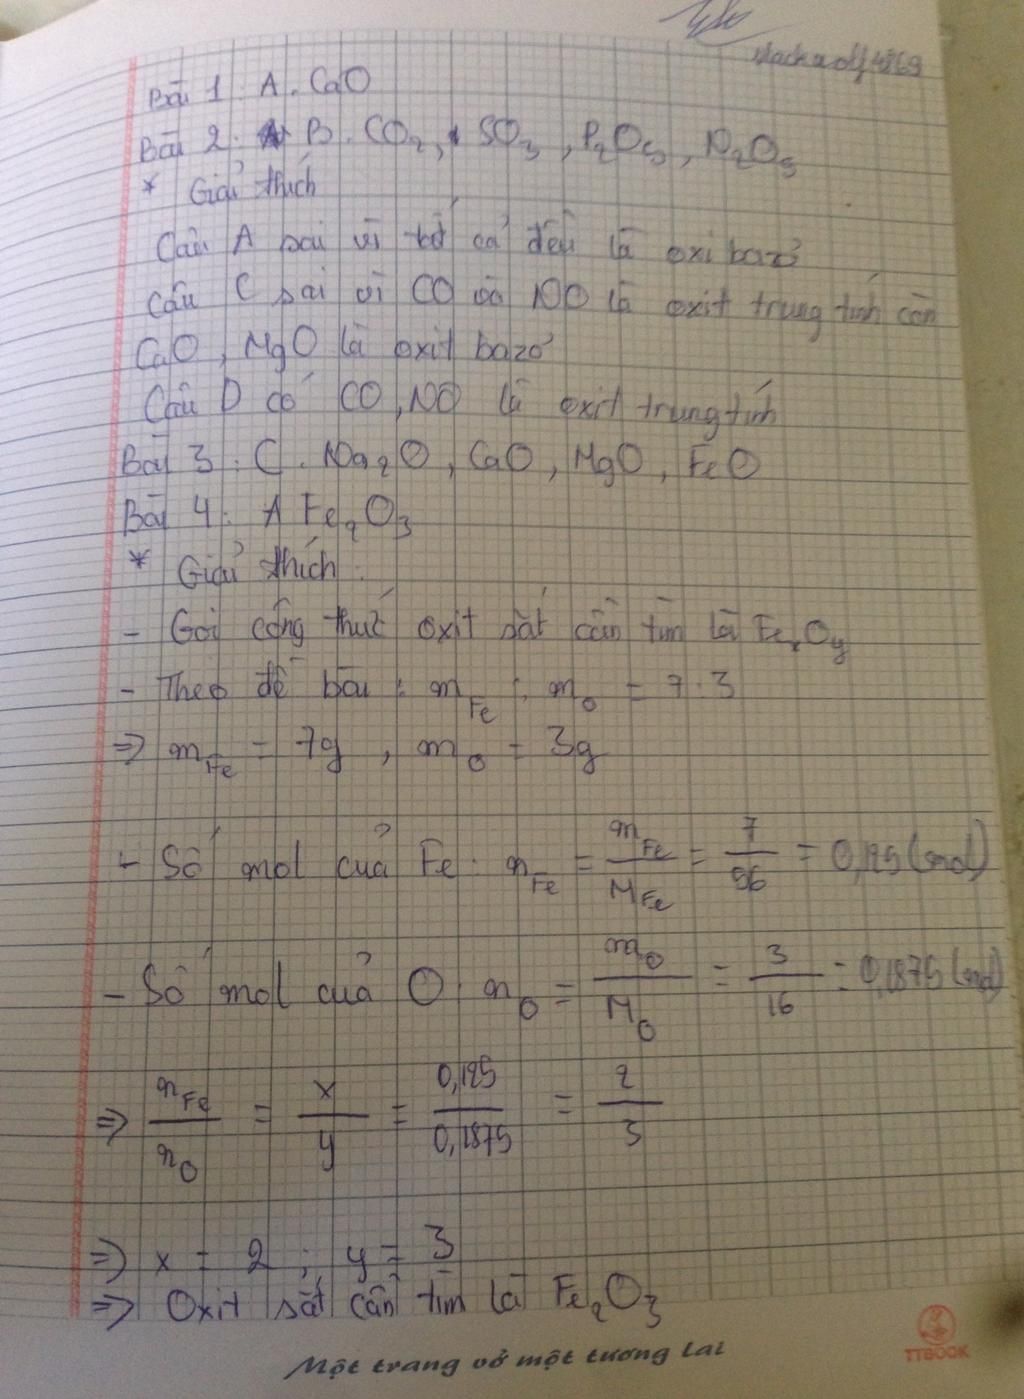 Machadff4869
Bài 1: A. CaO
Bài 2: B. CO₂, SO₃, P₂O₅, N₂O₅
* Giải thích
Câu A sai vì tất cả đều là oxi bazơ
Câu C sai vì CO và NO là oxit trung tính còn
CaO, MgO là oxit bazơ
Câu D có CO, NO là oxit trung tính
Bài 3: C. Na₂O, CaO, MgO, FeO
Bài 4: A Fe₂O₃
* Giải thích:
- Gọi công thức oxit sắt cần tìm là FeₓOᵧ
- Theo đề bài: m_Fe : m_O = 7:3
⇒ m_Fe = 7g, m_O = 3g
- Số mol của Fe: n_Fe = m_Fe/M_Fe = 7/56 = 0,125 (mol)
- Số mol của O: n_O = m_O/M_O = 3/16 = 0,1875 (mol)
⇒ n_Fe/n_O = x/y = 0,125/0,1875 = 2/3
⇒ x = 2; y = 3
⇒ Oxit sắt cần tìm là Fe₂O₃
Một trang vở một tương lai
TTBOOK